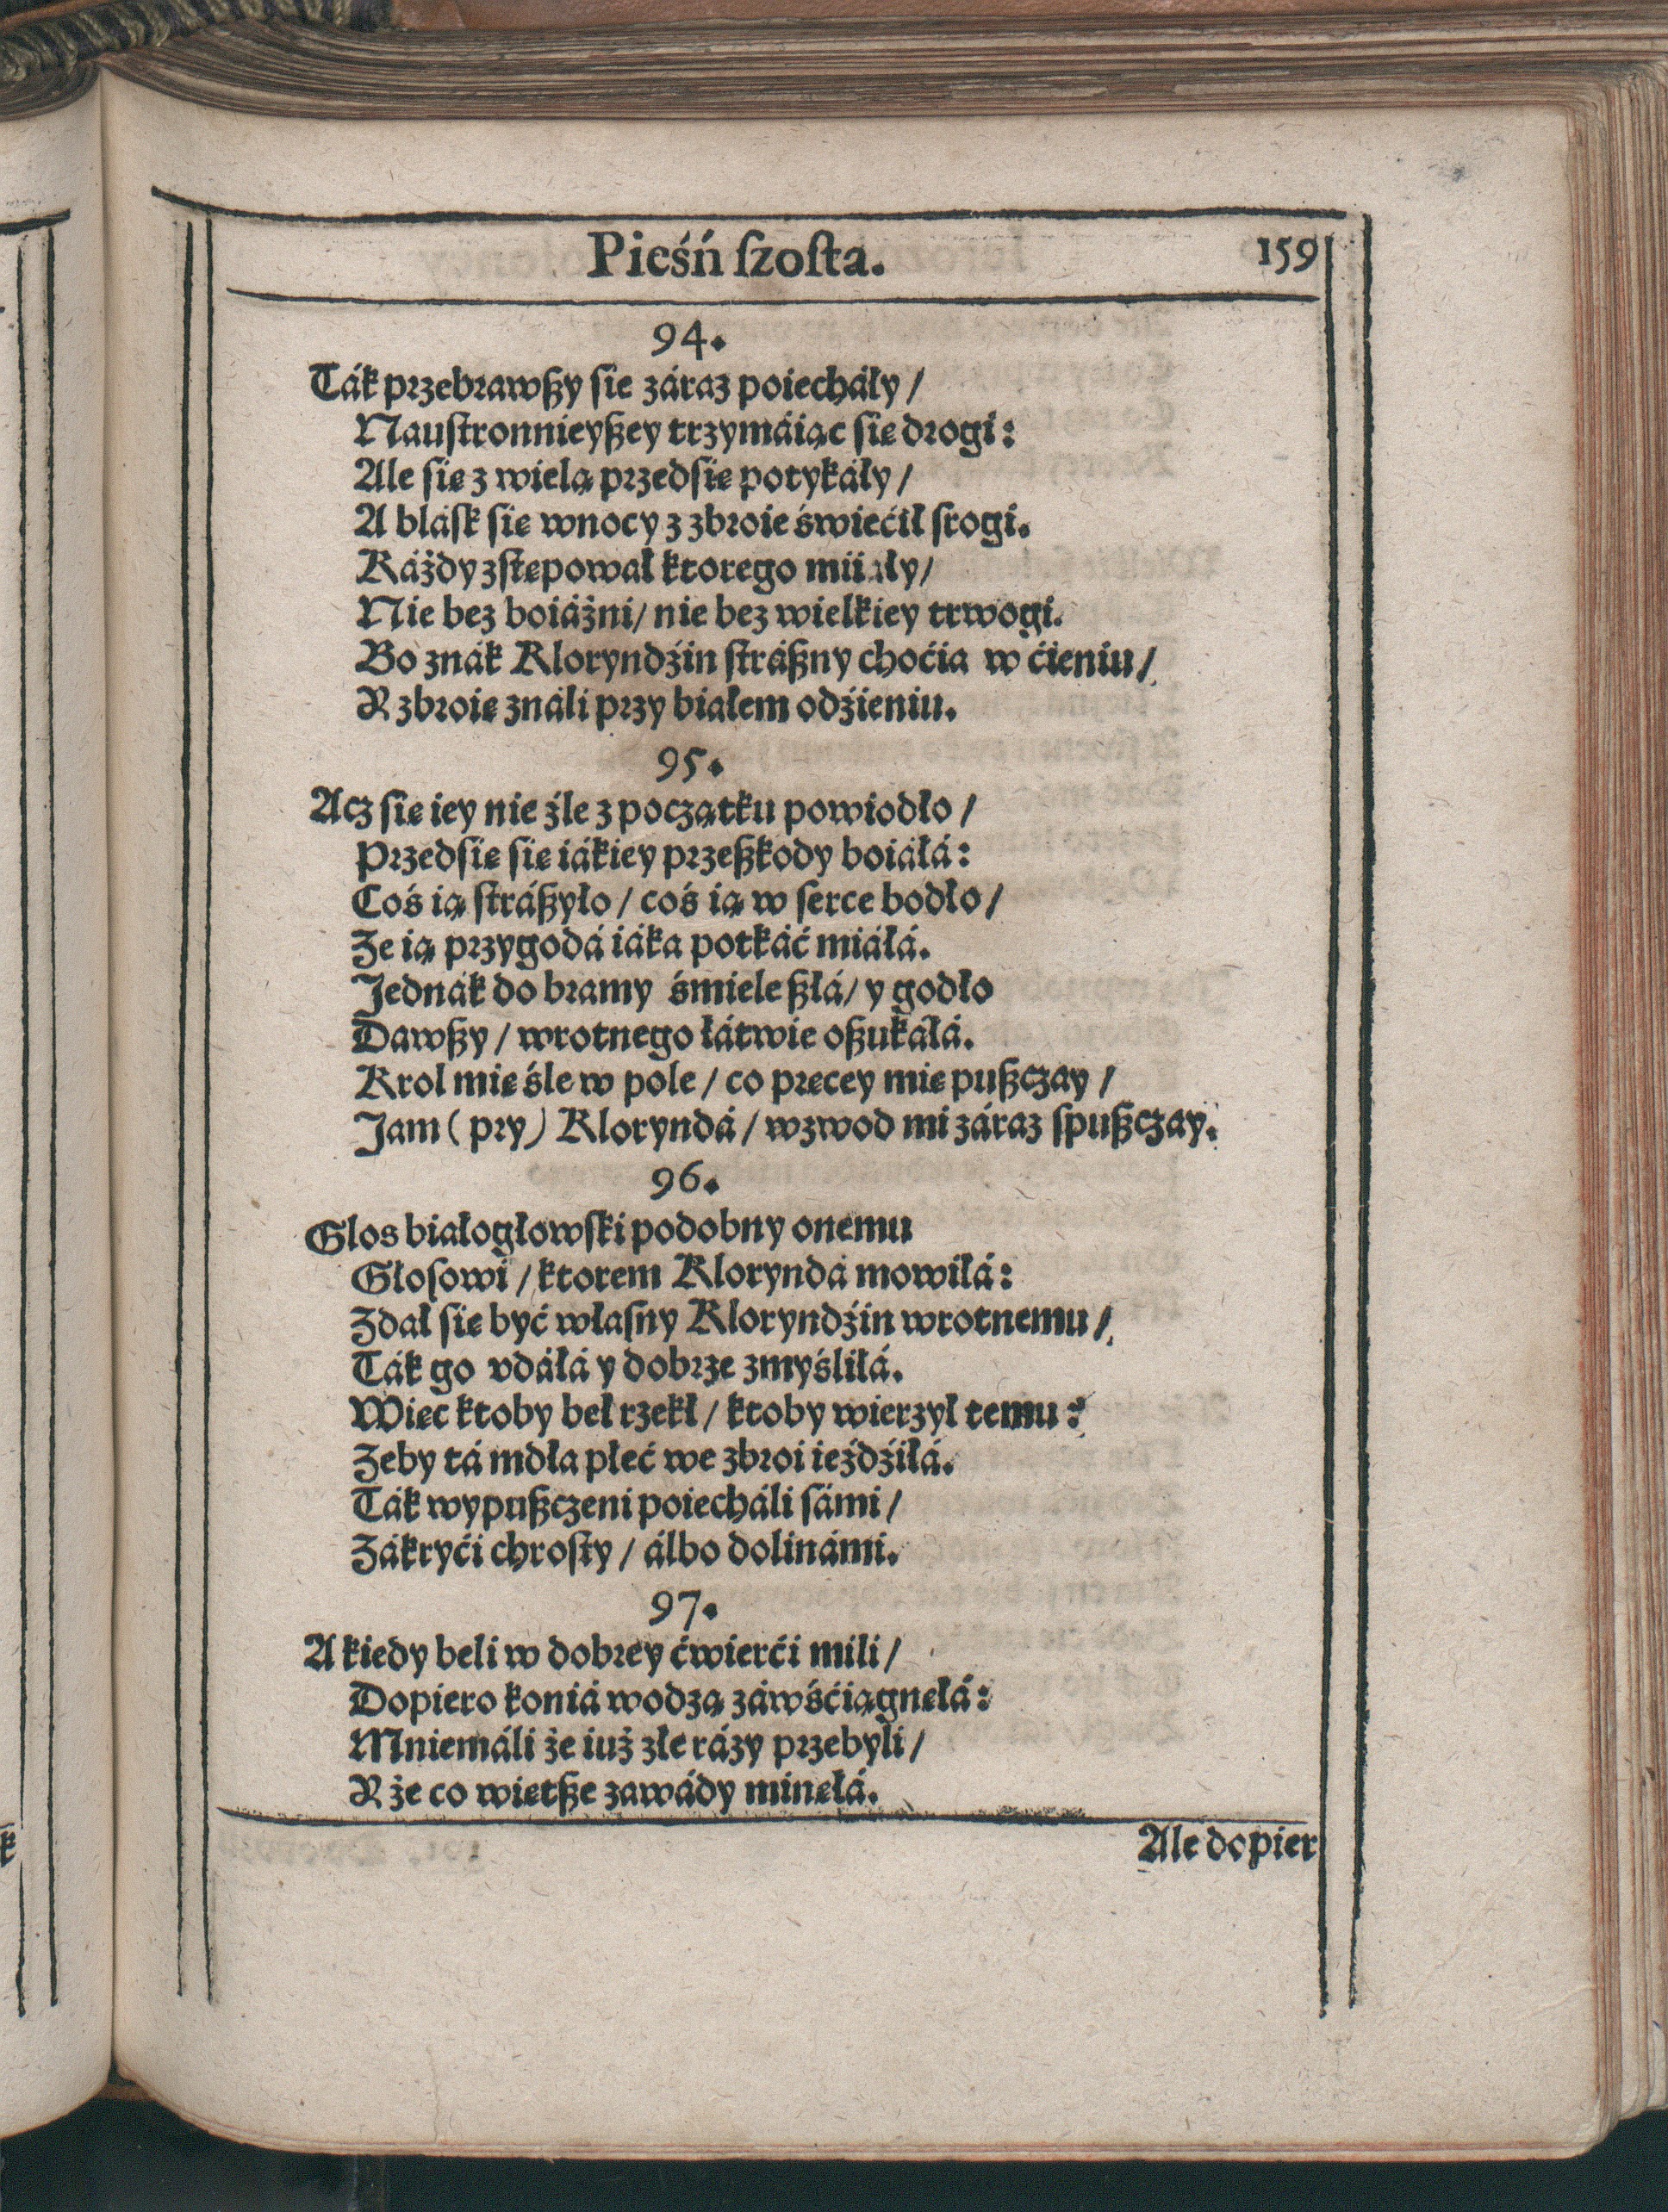 Pieśń ſzoſta.
159
94.
Ták przebrawßy ſie záraz poiecháły /
Nauſtronnieyßey trzymáiąc ſię drogi:
Ale ſię z wielą przedſię potykáły /
A blask ſię wnocy z zbroie świećił ſrogi.
Káżdy zſtępował ktorego
Nie bez boiáźni / nie bez wielkiey trwogi.
Bo znák Kloryndźin ſtráßny choćia w ćieniu /
Y zbroię ználi przy białem odźieniu.
95.
Acz ſię iey nie źle z początku powiodło /
Przedſię ſię iákiey przeßkody boiáłá:
Coś ią ſtráßyło / coś ią w ſerce bodło /
Ze ią przygodá iáka potkáć miáłá.
Jednák do bramy śmiele ßłá / y godło
Dawßy / wrotnego łátwie oßukáłá.
Krol mię śle w pole / co pręcey mię pußczay /
Jam (pry) Kloryndá / wzwod mi záraz ſpußczay.
96.
Glos białogłowſki podobny onemu
Głoſowi / ktorem Kloryndá mowiłá:
Zdał ſię być właſny Kloryndźin wrotnemu /
Ták go vdáłá y dobrze zmyśliłá.
Więc ktoby beł rzekł / ktoby wierzył temu:
Zeby tá mdła płeć we zbroi ieźdźiłá.
Ták wypußczeni poiecháli sámi /
Zákryći chroſty / álbo dolinámi.
97.
A kiedy beli w dobrey ćwierći mili /
Dopiero koniá wodzą záwśćiągnęłá:
Mniemáli że iuż złe rázy przebyli /
Y że co więtße zawády minęłá.
Ale dopier